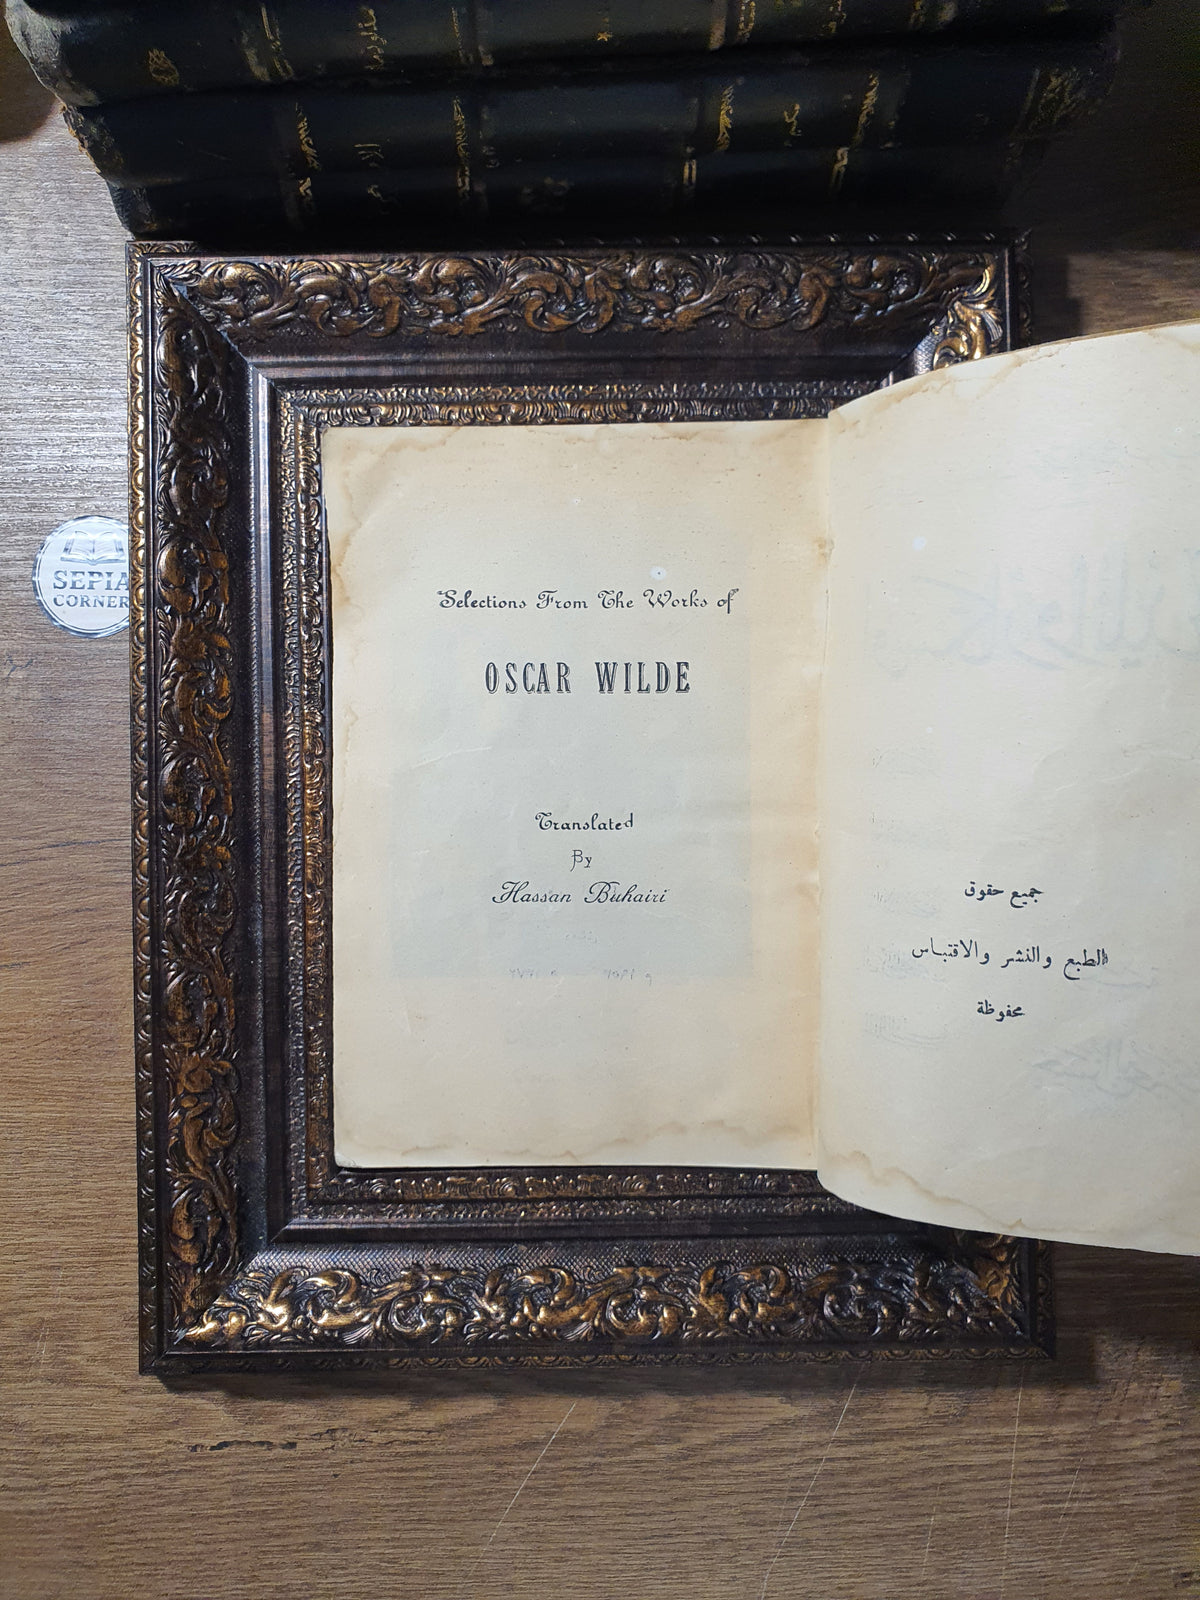 SEPIA
CORNER
Selections From The Works of
OSCAR WILDE
Translated
By
Hassan Buhairi
جميع حقوق
الطبع والنشر والاقتباس
محفوظة